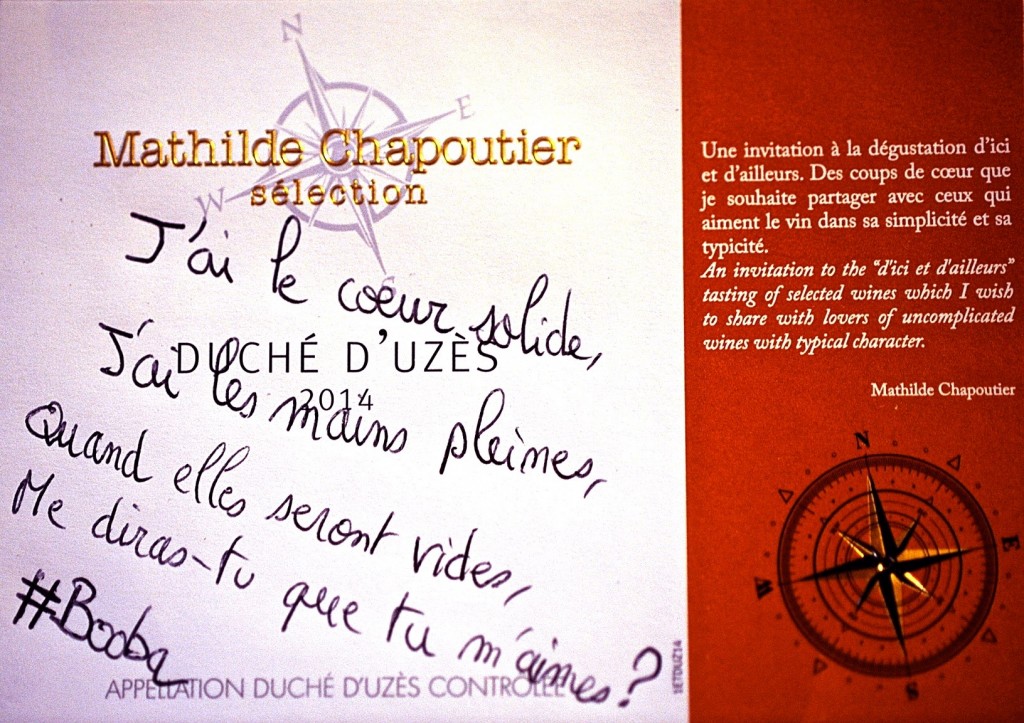 N
E
Mathilde Chapoutier
W
sélection
S
J'ai le cœur solide,
DUCHÉ D'UZÈS
J'ai les mains pleines,
2014
Quand elles seront vides,
Me diras-tu que tu m'aimes?
#Booba
APPELLATION DUCHÉ D'UZÈS CONTRÔLÉE
1ETDUZ14
Une invitation à la dégustation d'ici
et d'ailleurs. Des coups de cœur que
je souhaite partager avec ceux qui
aiment le vin dans sa simplicité et sa
typicité.
An invitation to the "d'ici et d'ailleurs"
tasting of selected wines which I wish
to share with lovers of uncomplicated
wines with typical character.
Mathilde Chapoutier
N
E
W
S